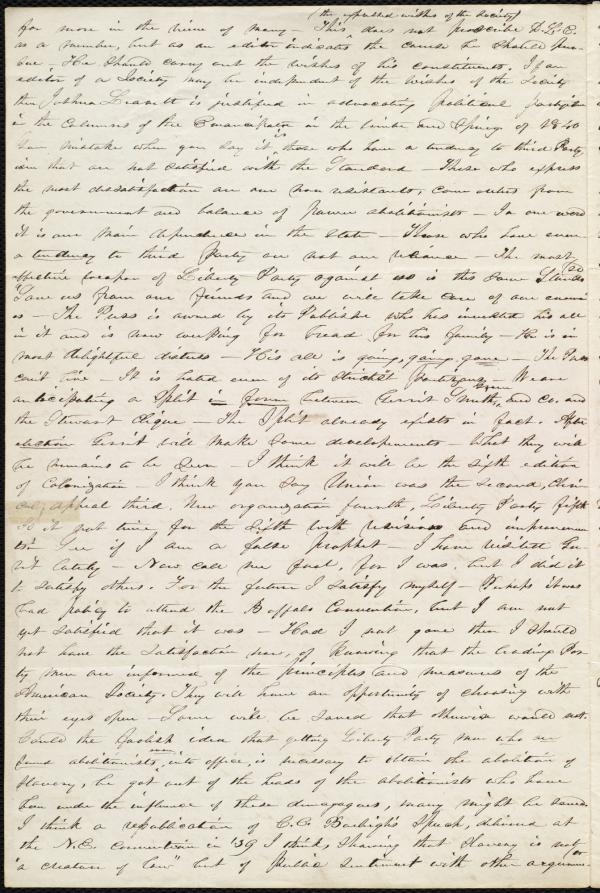 (the expressed wishes of the Society)
for more in the view of many – This, does not proscribe D.L.C.
as a member, but as an editor indicates the course he should pur-
sue. He should carry out the wishes of his constituents. If an
editor of a Society may be independent of the wishes of the Society
then Joshua Leavitt is justified in advocating political partyism
in the columns of the Emancipator in the winter and Spring of 1840
You mistake when you say it is those who have a tendency to third Party
ism that are not satisfied with the Standard – Those who express
the most dissatisfaction are our non resistants, come outers from
the government and balance of power abolitionists – In one word
it is our main dependence in the State – Those who have even
a tendency to third Party are not our reliance – The most
effective weapon of Liberty Party against us is this same Standard
"Save us from our friends and we will take care of our enemi
es – The Press is owned by its Publisher who has invested his all
in it and is now working for bread for his family – He is in
most delightful distress – His all is going, going, gone – The Press
can't live – It is hated even of its strictest partizans – We are
anticipating a Split in form between Gerrit Smith, and co. and
the Stewart Clique – The Split already exists in fact. After
election Gerrit will make some developements – What they will
be remains to be seen – I think it will be the sixth edition
of Colonization I think you say Union was the second,
appeal third, New organization fourth, Liberty Party fifth
is it not time for the sixth with revisions and improvemen
ts? See if I am a false prophet – I have visited Ger-
rit lately – Now call me fool, for I was, but I did it
to satisfy others. For the future I satisfy myself – Perhaps it was
bad policy to attend the Buffalo Convention, but I am not
yet satisfied that it was – Had I not gone then I should
not have the satisfaction now, of knowing that the leading Par-
ty men are informed of the principles and measures of the
American Society. They will have an opportunity of choosing with
their eyes open – Some will be saved that otherwise would not.
Could the foolish idea that getting Liberty Party men
abolitionists, into office, is necessary to obtain the abolition of
Slavery, be got out of the heads of the abolitionists who have
been under the influence of these demagogues, many might be saved.
I think a republication of C.C. Burleigh's Speech, delivered at
the N.E. convention in '39 I think, showing that Slavery is not
"a creature of law" but of public sentiment with other argumen-